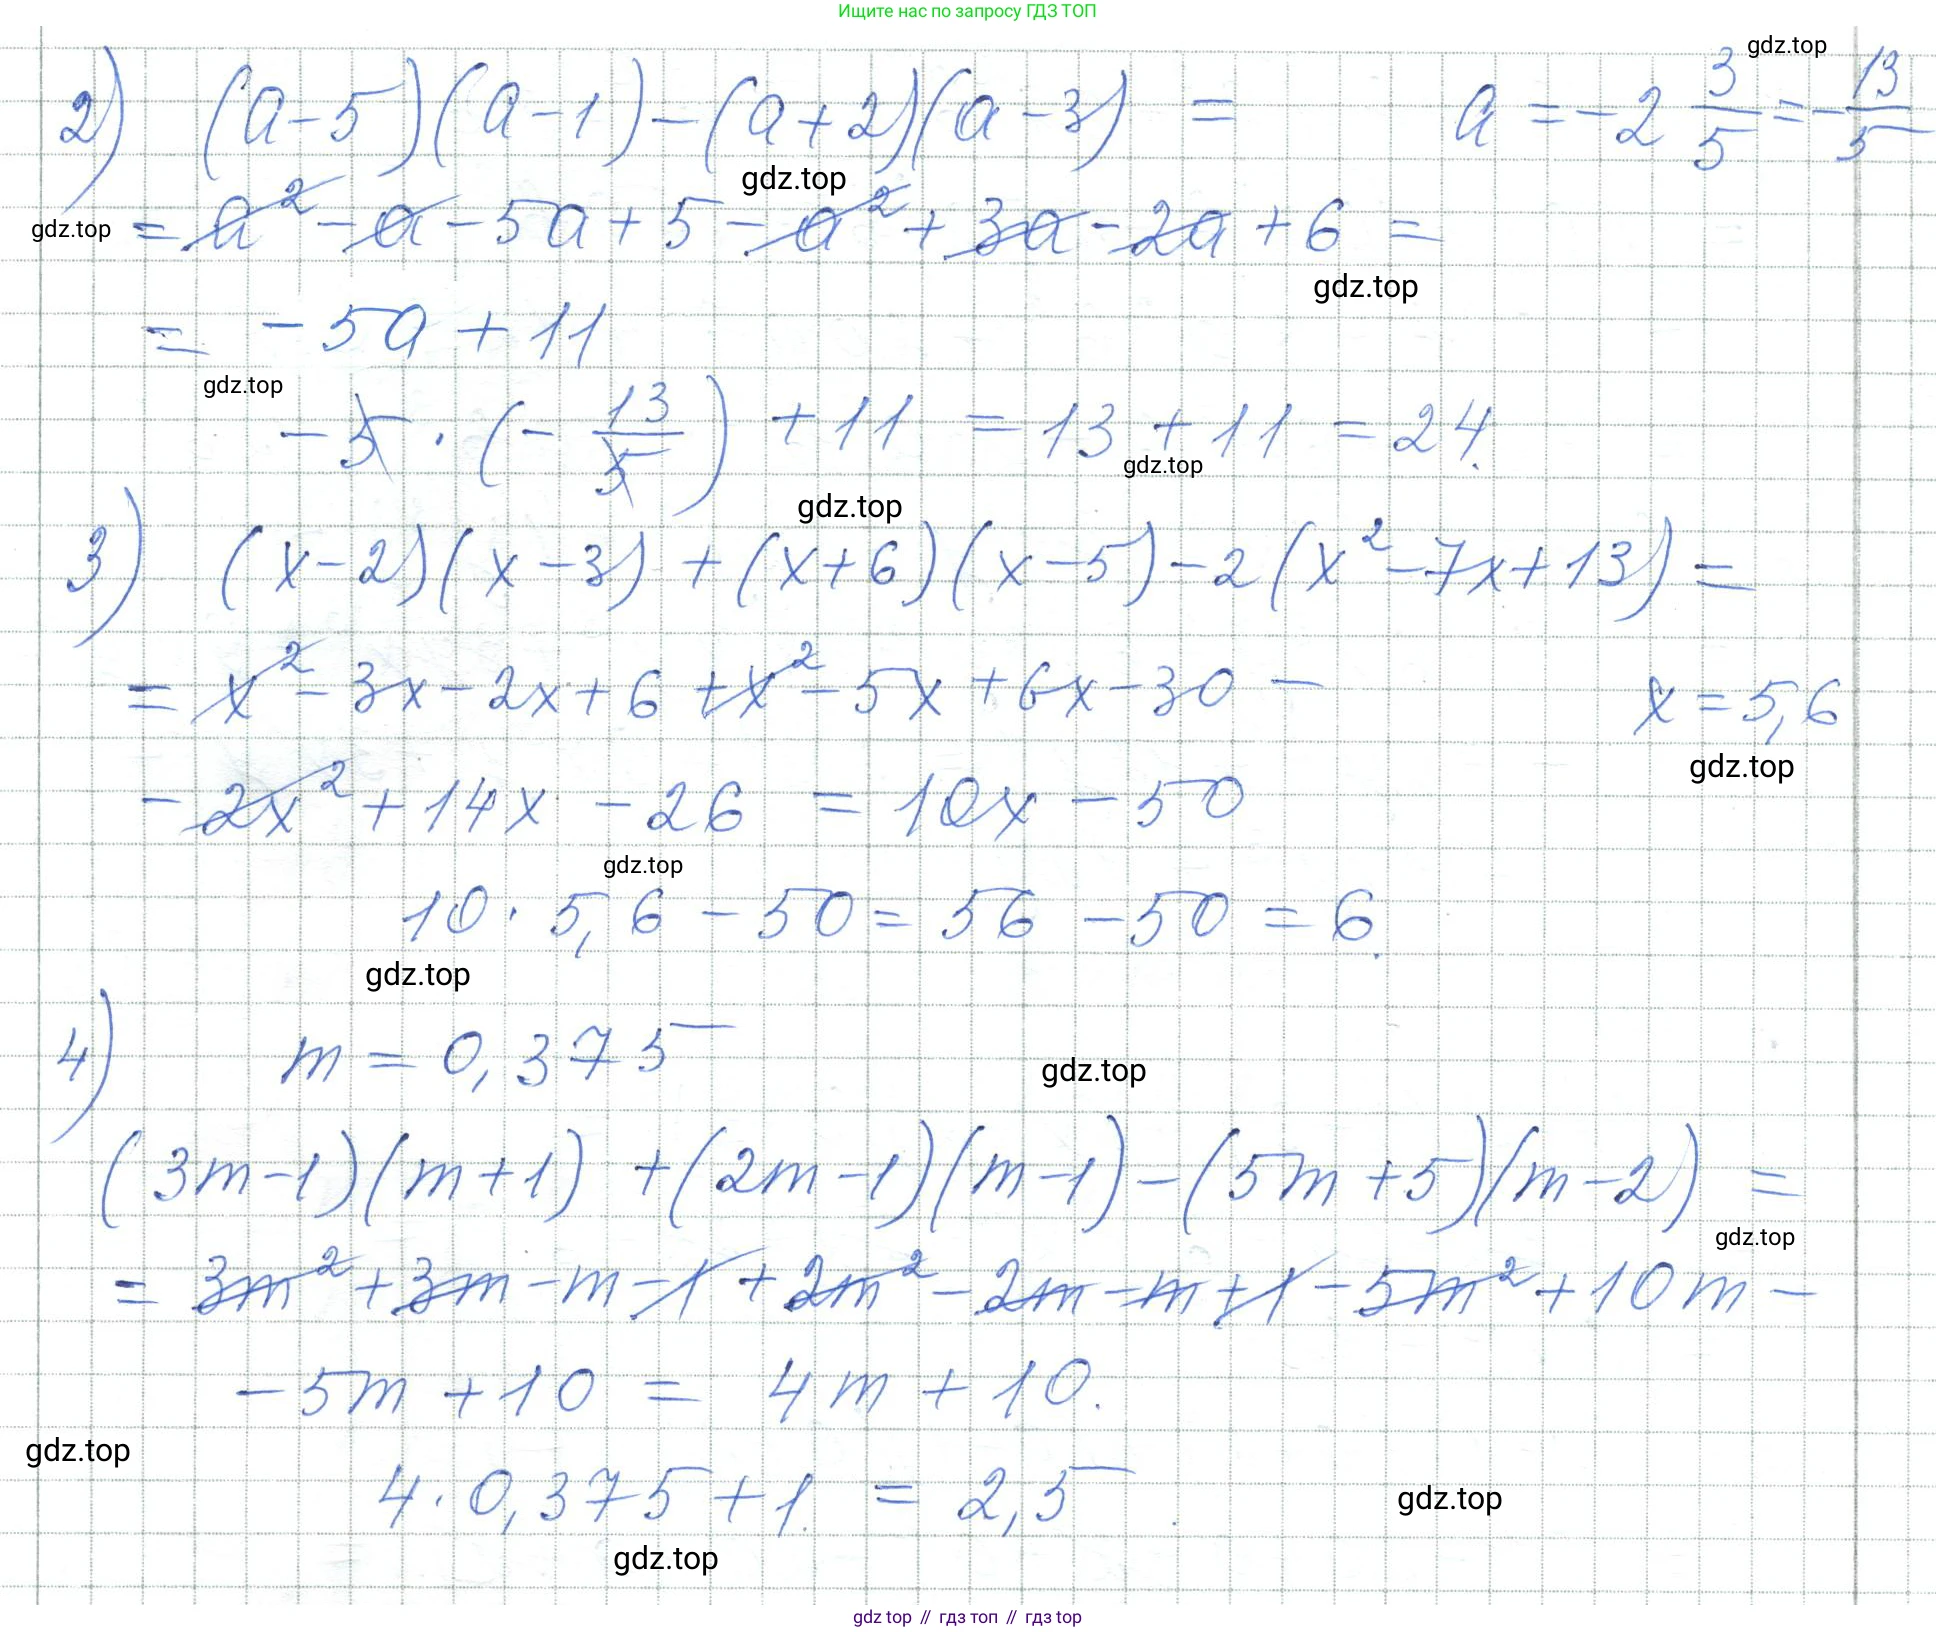 Ищите нас по запросу ГДЗ ТОП
gdz.top
2) (a-5)(a-1)-(a+2)(a-3) = a = -2 3/5 = -13/5
gdz.top
gdz.top
= a² - a - 5a + 5 - a² + 3a - 2a + 6 =
gdz.top
= -5a + 11
gdz.top
-5 · (-13/5) + 11 = 13 + 11 = 24.
gdz.top
gdz.top
3) (x-2)(x-3) + (x+6)(x-5) - 2(x² - 7x + 13) =
= x² - 3x - 2x + 6 + x² - 5x + 6x - 30 - x = 5,6
gdz.top
- 2x² + 14x - 26 = 10x - 50
gdz.top
10 · 5,6 - 50 = 56 - 50 = 6.
gdz.top
4) m = 0,375
gdz.top
(3m-1)(m+1) + (2m-1)(m-1) - (5m+5)(m-2) =
gdz.top
= 3m² + 3m - m - 1 + 2m² - 2m - m + 1 - 5m² + 10m -
- 5m + 10 = 4m + 10.
gdz.top
4 · 0,375 + 1. = 2,5
gdz.top
gdz.top
gdz top // гдз топ // гдз top